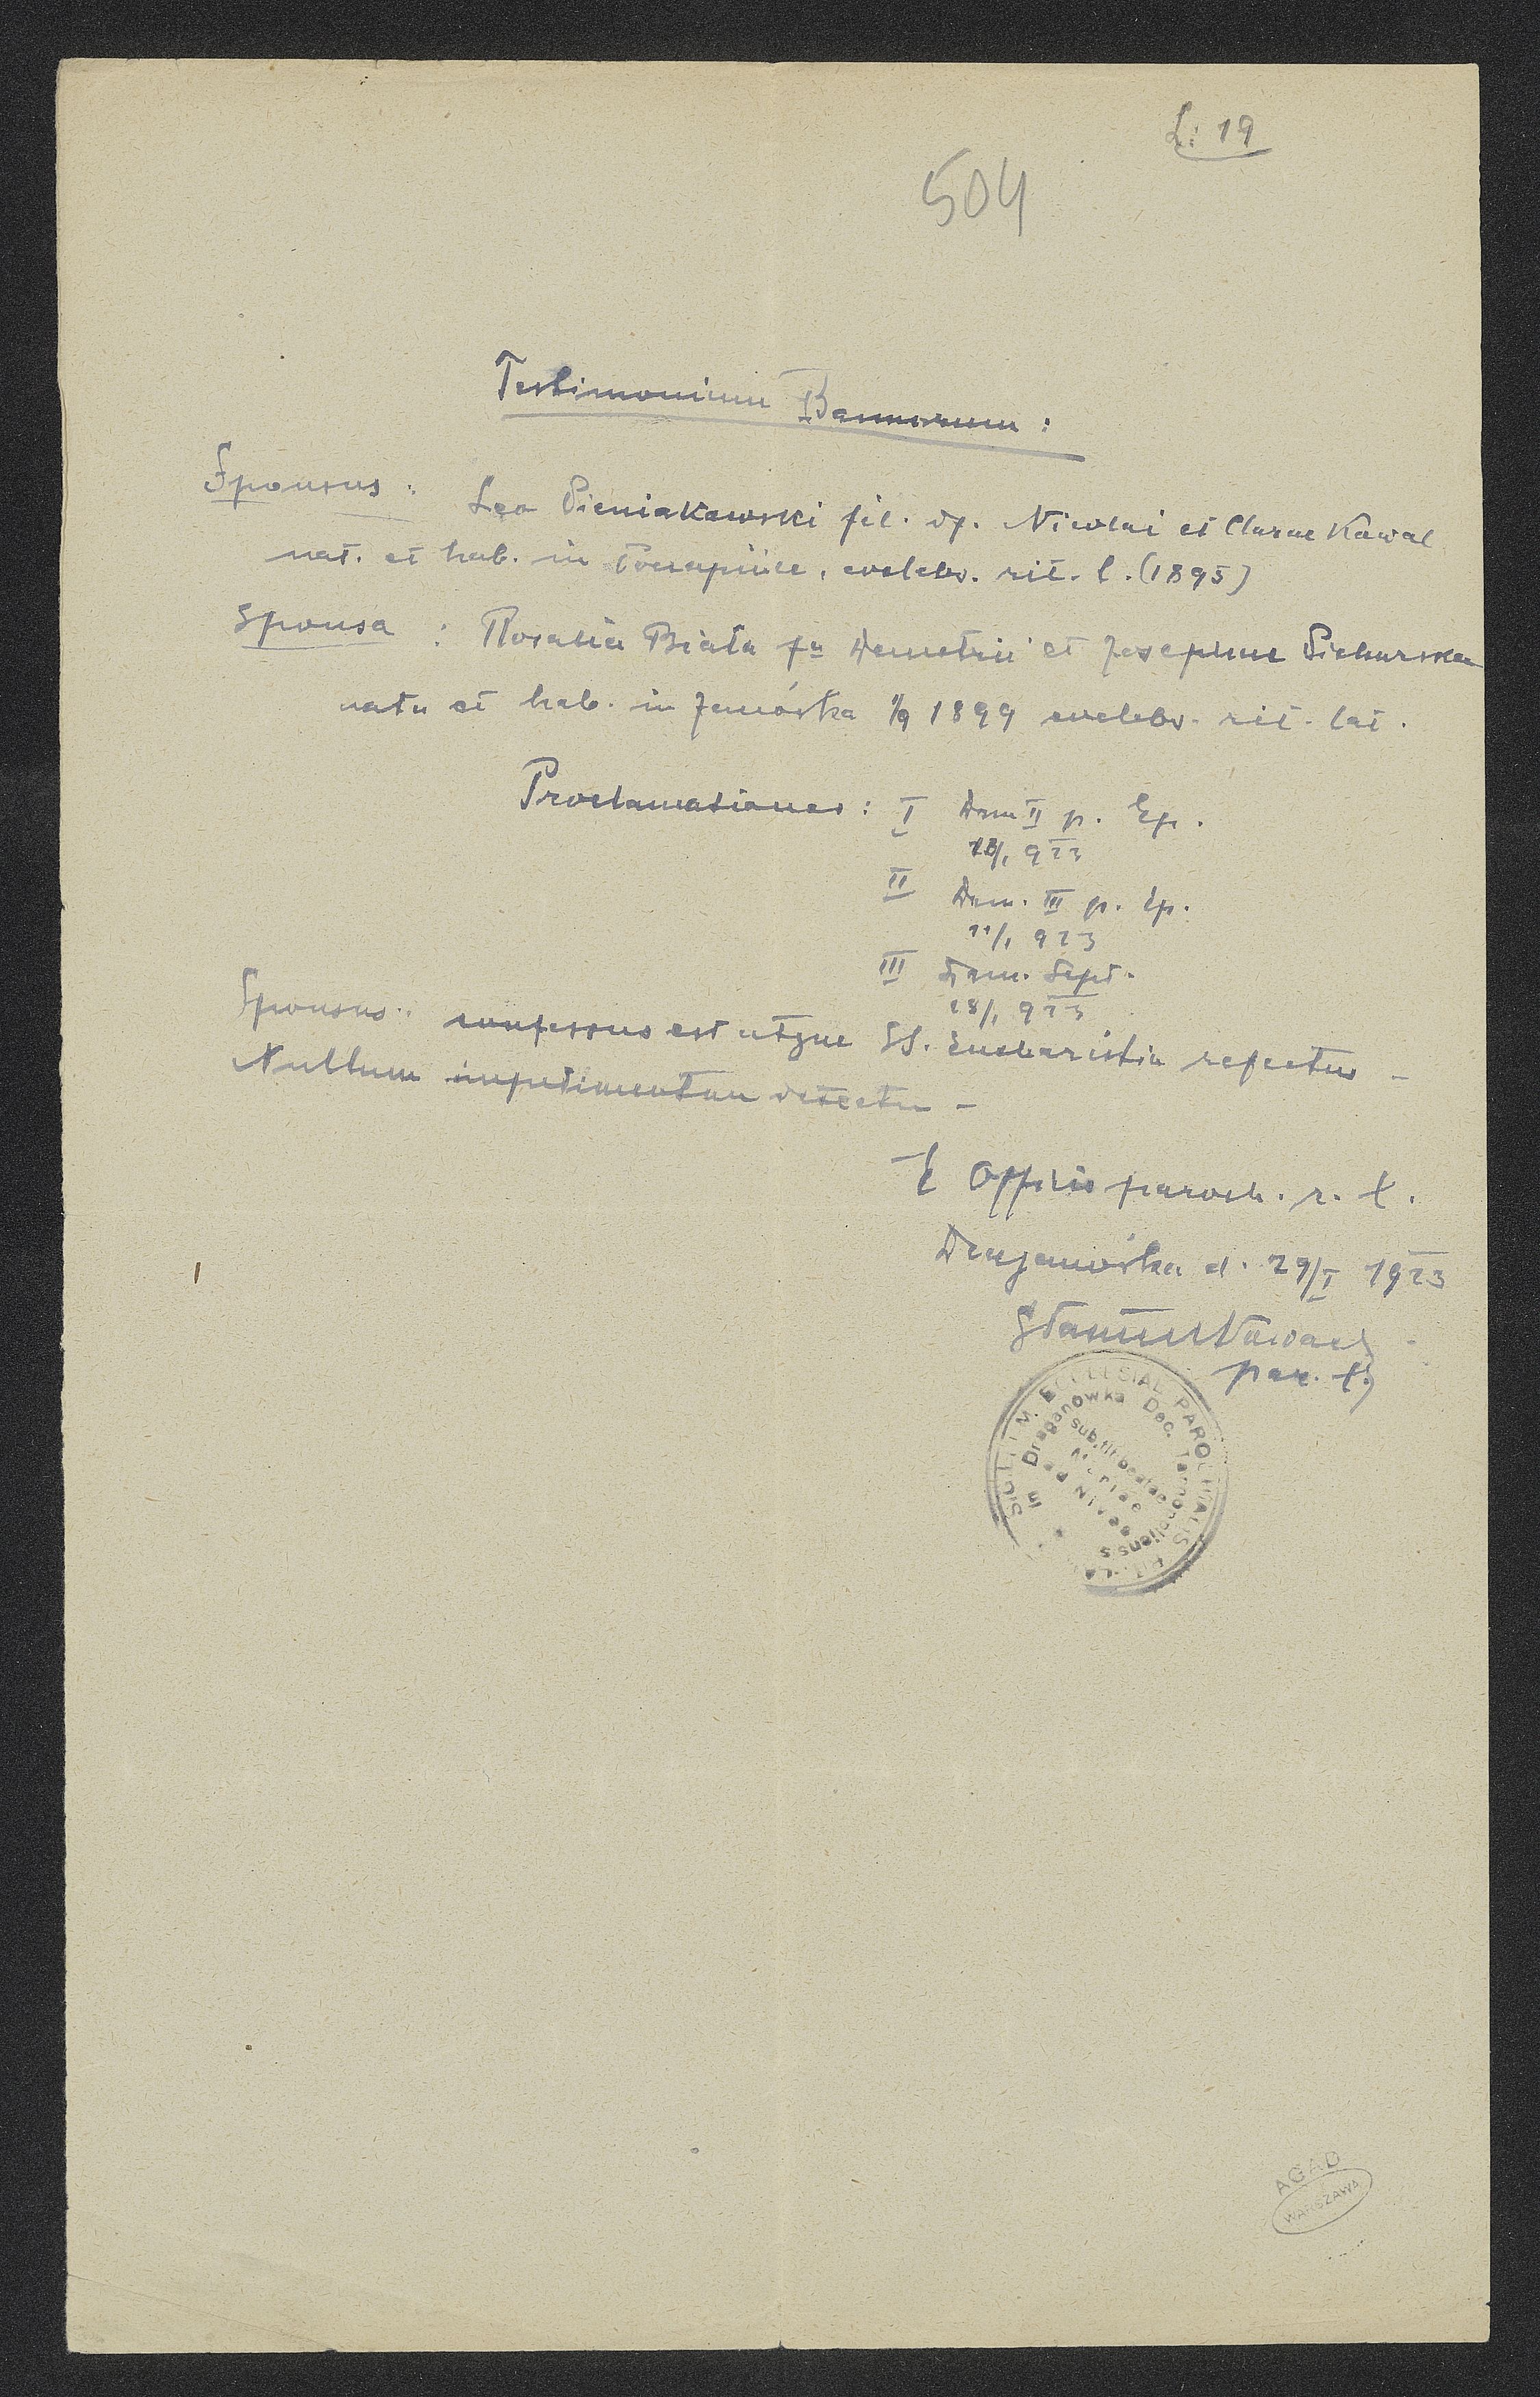 L: 19
504
Testimonium Bannorum :
Sponsus : Leo Pieniakowski fil. Nicolai et Clarae Kowal
nat. et hab. in caelebs. rit. l. (1895)
Sponsa : Rosalia Biała fa Demetrii et Josephine Piekarska
nata et hab. in Janówka 1/9 1899 caelebs. rit. lat.
Proclamationes : I Dom II p. Ep.
/1 923
II Dom. III p. Ep.
21/1 923
III Dom. Sept.
28/1 923
Sponsus : confessus est atque SS. Eucharistia refectus -
Nullum impedimentum detectu -
E Officio paroch. r. l.
Draganówka d. 29/I 1923
par. l.
SIGILLUM ECCLESIAE PAROCHIALIS RIT. LAT.
E Draganówka Dec. Tarnopoliensis
sub tit beatae
Mariae
ad Nives
AGAD
WARSZAWA